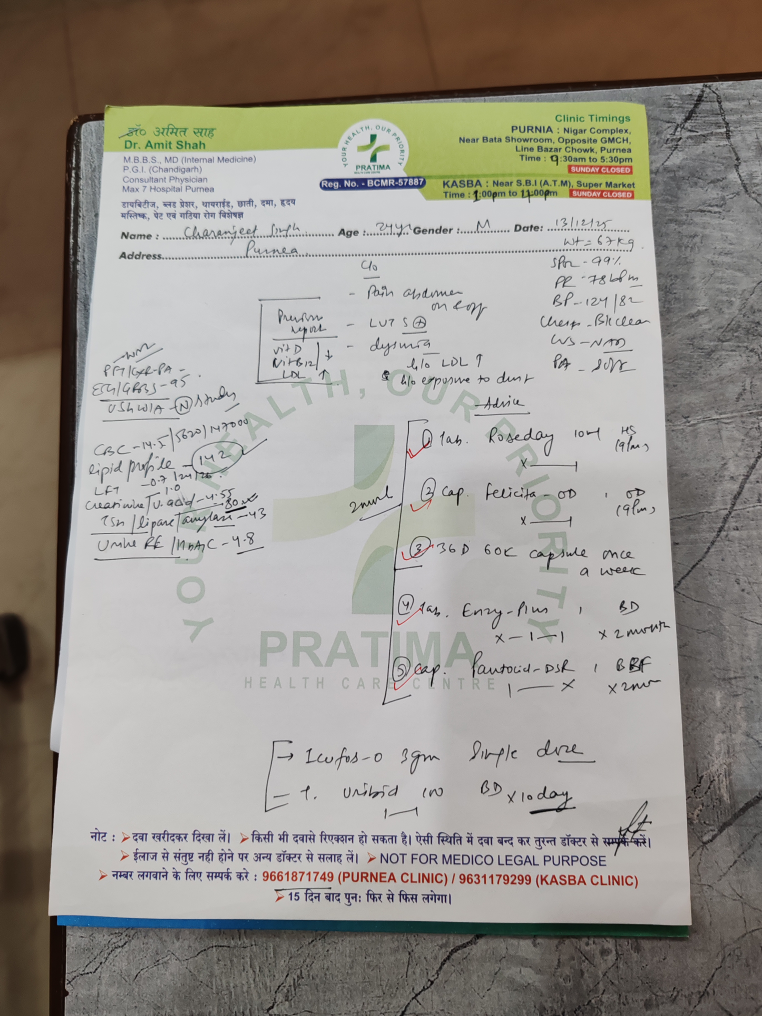 डॉ० अमित साह
Dr. Amit Shah
M.B.B.S., MD (Internal Medicine)
P.G.I. (Chandigarh)
Consultant Physician
Max 7 Hospital Purnea
डायबिटीज, ब्लड प्रेशर, थायराईड, छाती, दमा, हृदय
मस्तिष्क, पेट एवं गठिया रोग विशेषज्ञ
YOUR HEALTH, OUR PRIORITY
PRATIMA
HEALTH CARE CENTRE
Reg. No. - BCMR-57887
Clinic Timings
PURNIA : Nigar Complex,
Near Bata Showroom, Opposite GMCH,
Line Bazar Chowk, Purnea
Time : 9:30am to 5:30pm
SUNDAY CLOSED
KASBA : Near S.B.I (A.T.M), Super Market
Time : :00pm to :00pm
SUNDAY CLOSED
Name : Charanjeet Singh Age : 24yr Gender : M Date: 13/12/25
Address Purnea
Wt = 67kg
SPO2 - 99%
PR - 78 bpm
BP - 124/82
Chest - B/L clear
CVS - NAD
PA - Soft
C/o
- Pain abdomen
on & off
- LUTS ⊕
- dysuria
h/o LDL ↑
h/o exposure to dust
Previous
report
Vit D
Vit B12 ↓
LDL ↑
PFT/CXR-PA -
ECG/GRBS - 95
USG W/A - N Study
CBC - 14.5/5620/147000
lipid profile - 142
LFT - 0.7/24/26
1.0
Creatinine/U. acid - 4.55
TSH/lipase/amylase - 43
Urine RE/HbA1C - 4.8
Advice
2month
① Tab. Roseday 10 HS
(9pm)
x — 1
② Cap. Felicita-OD , OD
(9pm)
x — 1
③ 36D 60K capsule once
a week
④ Tab. Enzy-Plus , BD
x — 1 — 1 x 2month
⑤ Cap. Pantocid-DSR , BBF
1 — x x 2mon
→ Icufos-O 3gm Single dose
- T. Uribid 100 BD x 10 day
1 — 1
YOUR HEALTH, OUR PRIORITY
PRATIMA
HEALTH CARE CENTRE
नोट : ➤ दवा खरीदकर दिखा लें। ➤ किसी भी दवासे रिएक्शन हो सकता है। ऐसी स्थिति में दवा बन्द कर तुरन्त डॉक्टर से सम्पर्क करें।
➤ ईलाज से संतुष्ट नही होने पर अन्य डॉक्टर से सलाह लें। ➤ NOT FOR MEDICO LEGAL PURPOSE
➤ नम्बर लगवाने के लिए सम्पर्क करे : 9661871749 (PURNEA CLINIC) / 9631179299 (KASBA CLINIC)
➤ 15 दिन बाद पुनः फिर से फिस लगेगा।